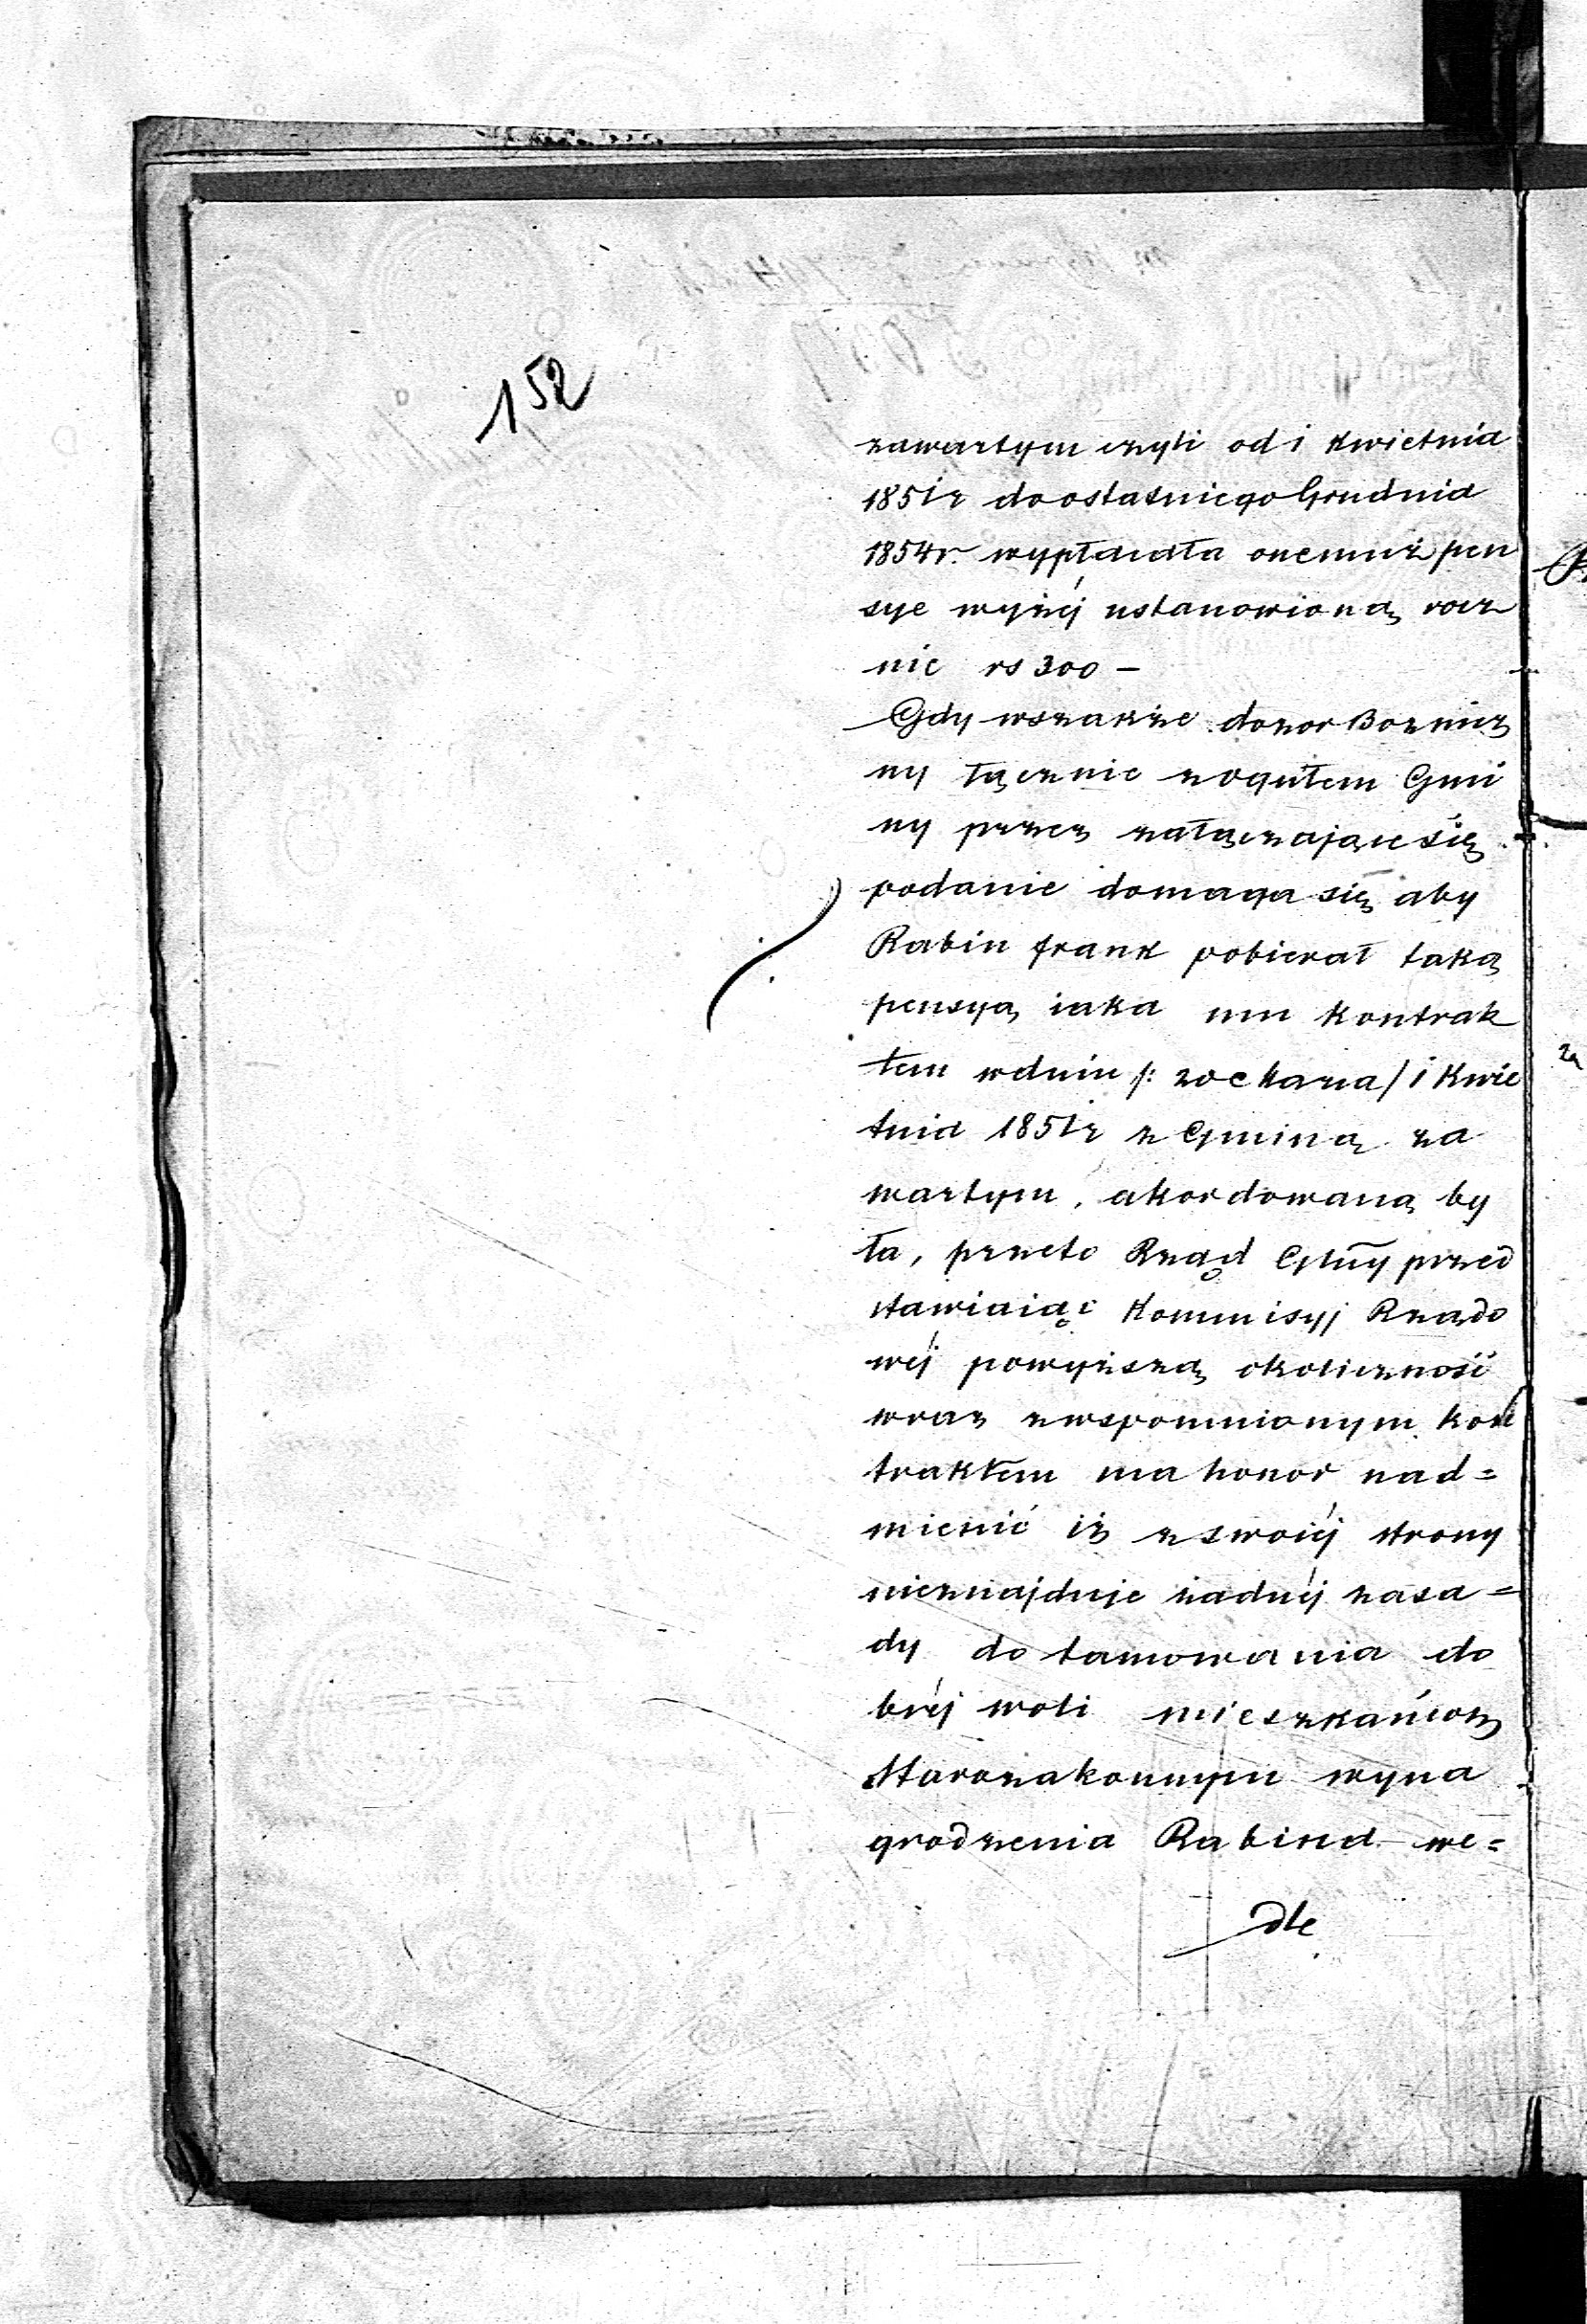 152
zawartym czyli od 1 Kwietnia
1851r do ostatniego Grudnia
1854r. wypłacała onemuż pen
sye wyżéj ustanowioną rocz
nie rs 300 –
Gdy wszakże dozor Boznicz
ny łącznie z ogułem Gmi
ny przez załączające się
podanie domaga się aby
Rabin frank pobierał taką
pensyą iaka mu Kontrak
tem w dniu /: 20 /1 Kwie
tnia 1851r z Gminą za
wartym, akordowaną by
ła, przeto Rząd Gbny przed
stawiaiąc Kommisyj Rządo
wéj powyższą okoliczność
wraz z wspomnionym kon
traktem ma honor nad=
mienić iż z swoiéj strony
nieznajduje żadnéj zasa=
dy do tamowania do
bréj woli mieszkańcom
Starozakonnym wyna
grodzenia Rabina we=
dle